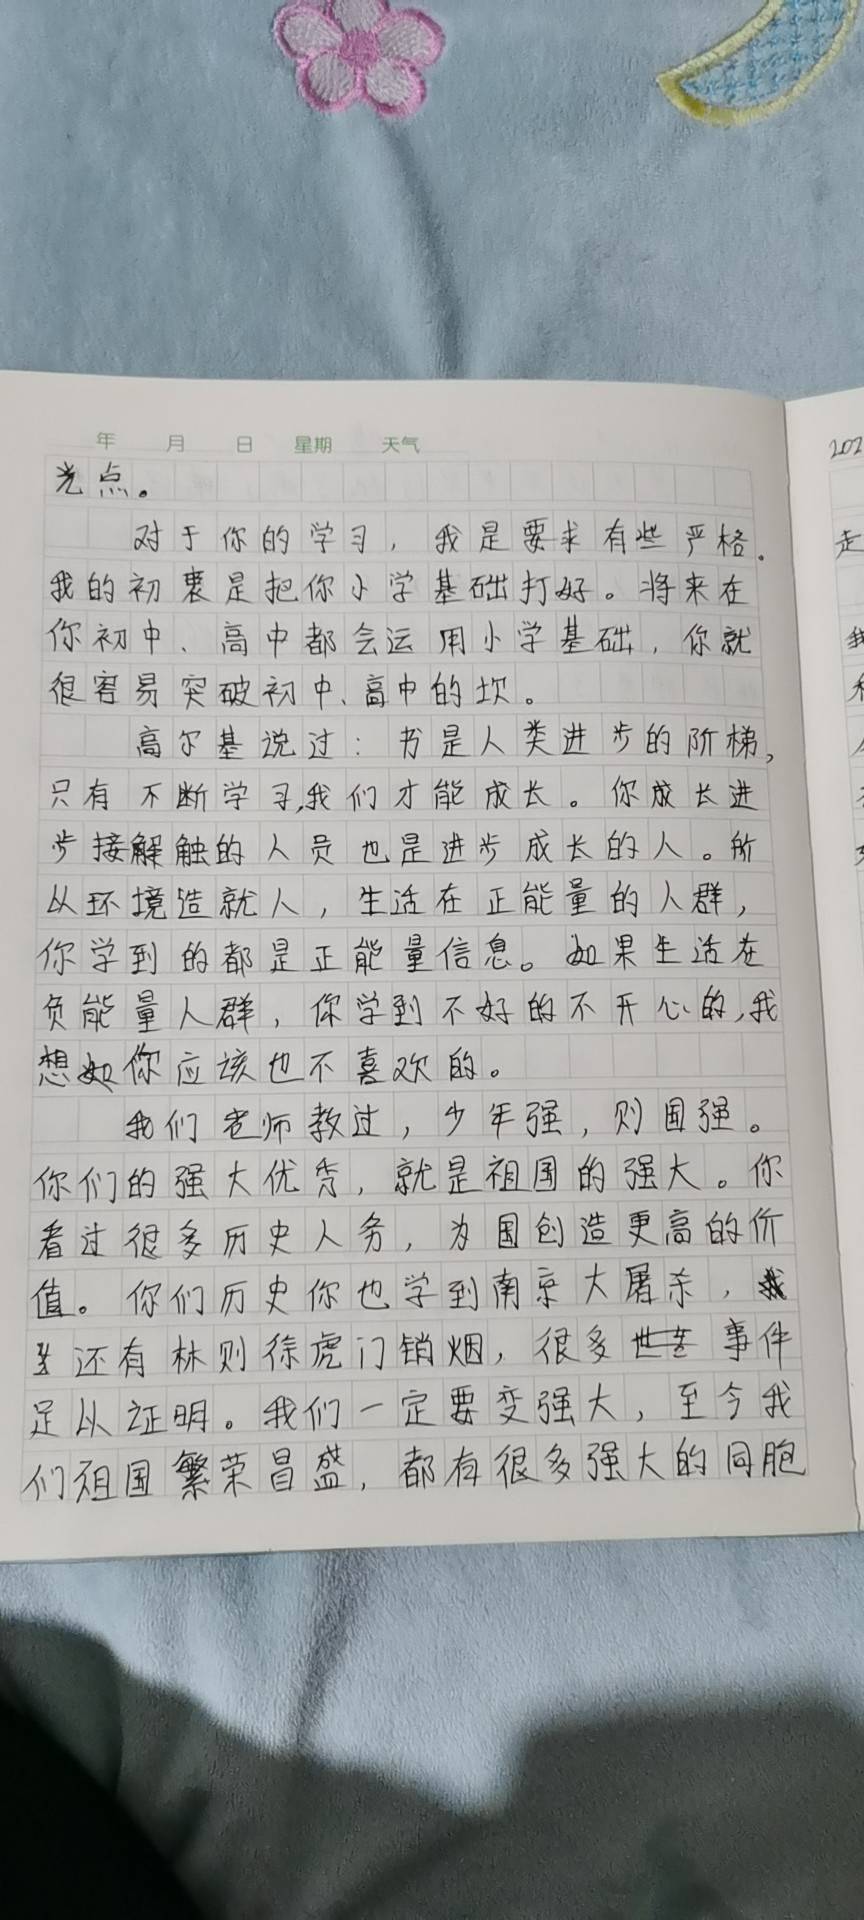 年 月 日 星期 天气
光点。
对于你的学习，我是要求有些严格.
我的初衷是把你小学基础打好。将来在
你初中、高中都会运用小学基础，你就
很容易突破初中、高中的坎。
高尔基说过：书是人类进步的阶梯，
只有不断学习,我们才能成长。你成长进
步接解触的人员也是进步成长的人。所
以环境造就人，生活在正能量的人群，
你学到的都是正能量信息。如果生活在
负能量人群，你学到不好的不开心的,我
想如你应该也不喜欢的。
我们老师教过，少年强，则国强。
你们的强大优秀，就是祖国的强大。你
看过很多历史人务，为国创造更高的价
值。你们历史你也学到南京大屠杀，
还有林则徐虎门销烟，很多事件
足以证明。我们一定要变强大，至今我
们祖国繁荣昌盛，都有很多强大的同胞
202
走